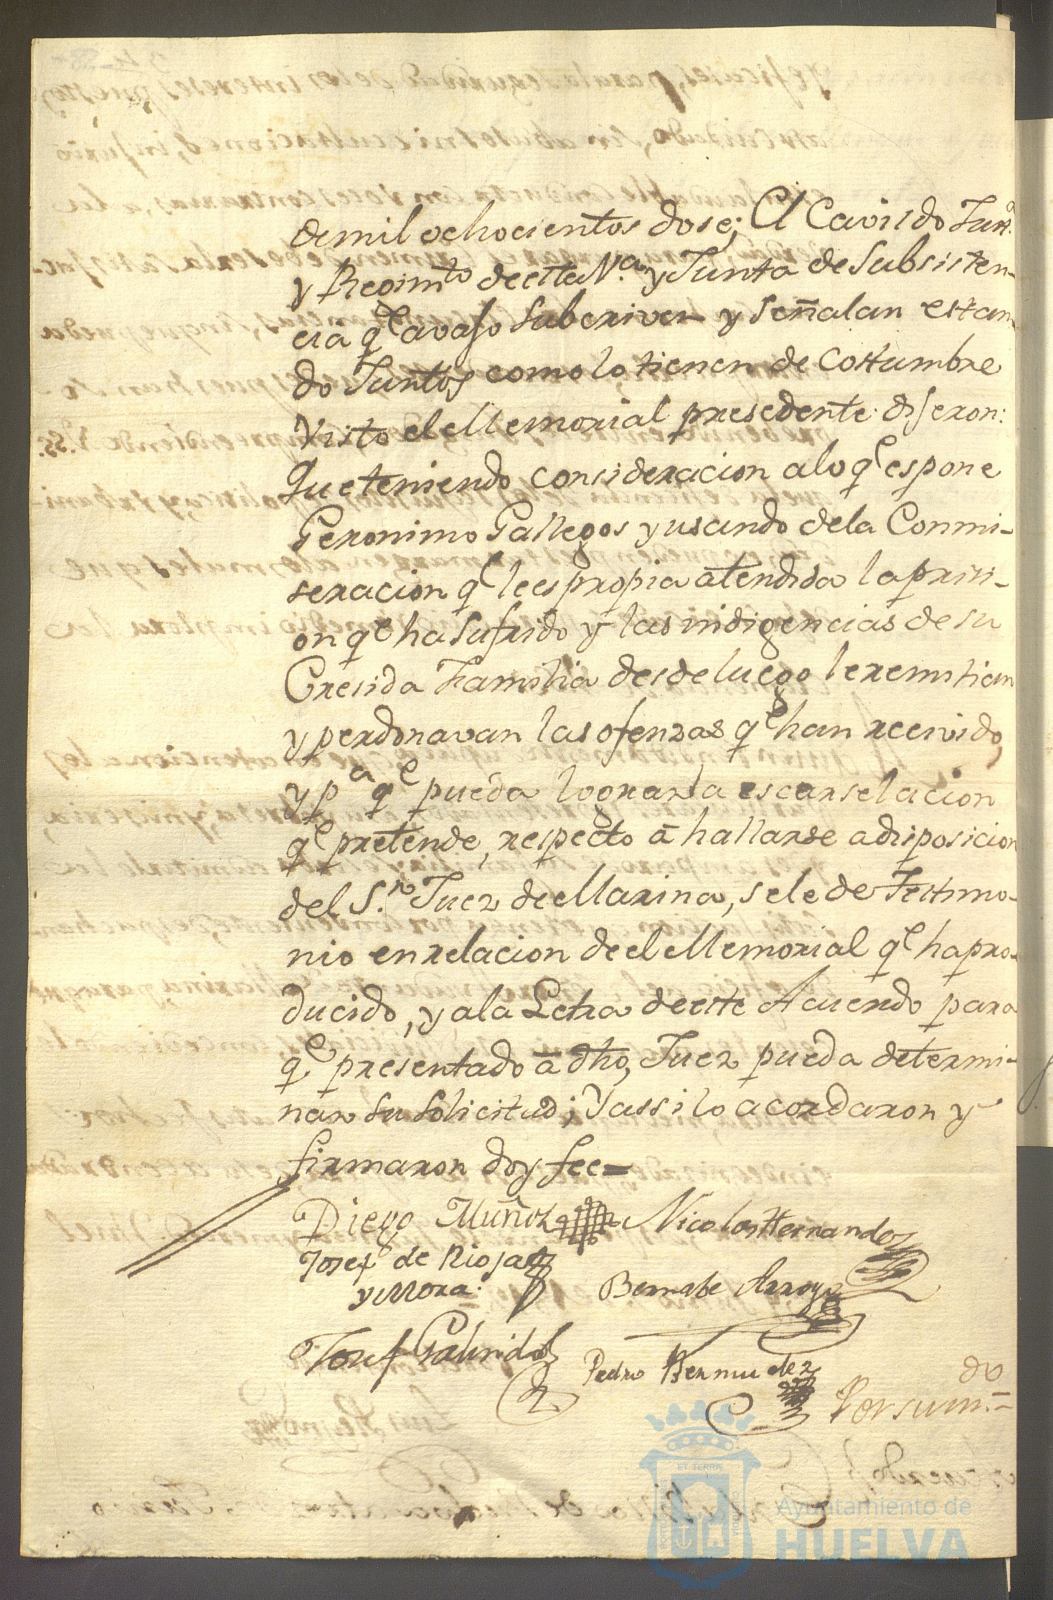 de mil ochocientos dose; El Cavildo Justª
y Regimto de esta Va. y Junta de Subsisten-
cia qe avajo Subcriven y señalan estan-
do Juntos como lo tienen de Costumbre
Visto el Memorial presedente dijeron:
Que teniendo consideracion alo qe espone
Geronimo Gallegos y usando dela Conmi-
seracion qe le es propia atendida la prisi-
on qe ha Sufrido y las indigencias de su
Cresida Familia desde luego le remitian
y perdonavan las ofenzas qe han recivido,
y pa qe pueda lograr la escarselacion
qe pretende, respecto á hallarse a disposicion
del Sr. Juez de Marina, se le de Testimo-
nio en relacion de el Memorial qe ha pro-
ducido, y ala Letra de este Acuerdo para
qe presentado á dho, Juez pueda determi-
nar su solicitud; Yassi lo acordaron y
firmaron doy fee=
Diego Muñoz Nicolas Hernandez
Josef de Rioja
y Mora. Bernabe Arroyo
Josef Galindo Pedro Bermudez
Por su m.do
ET TERRÆ
Ayuntamiento de
HUELVA